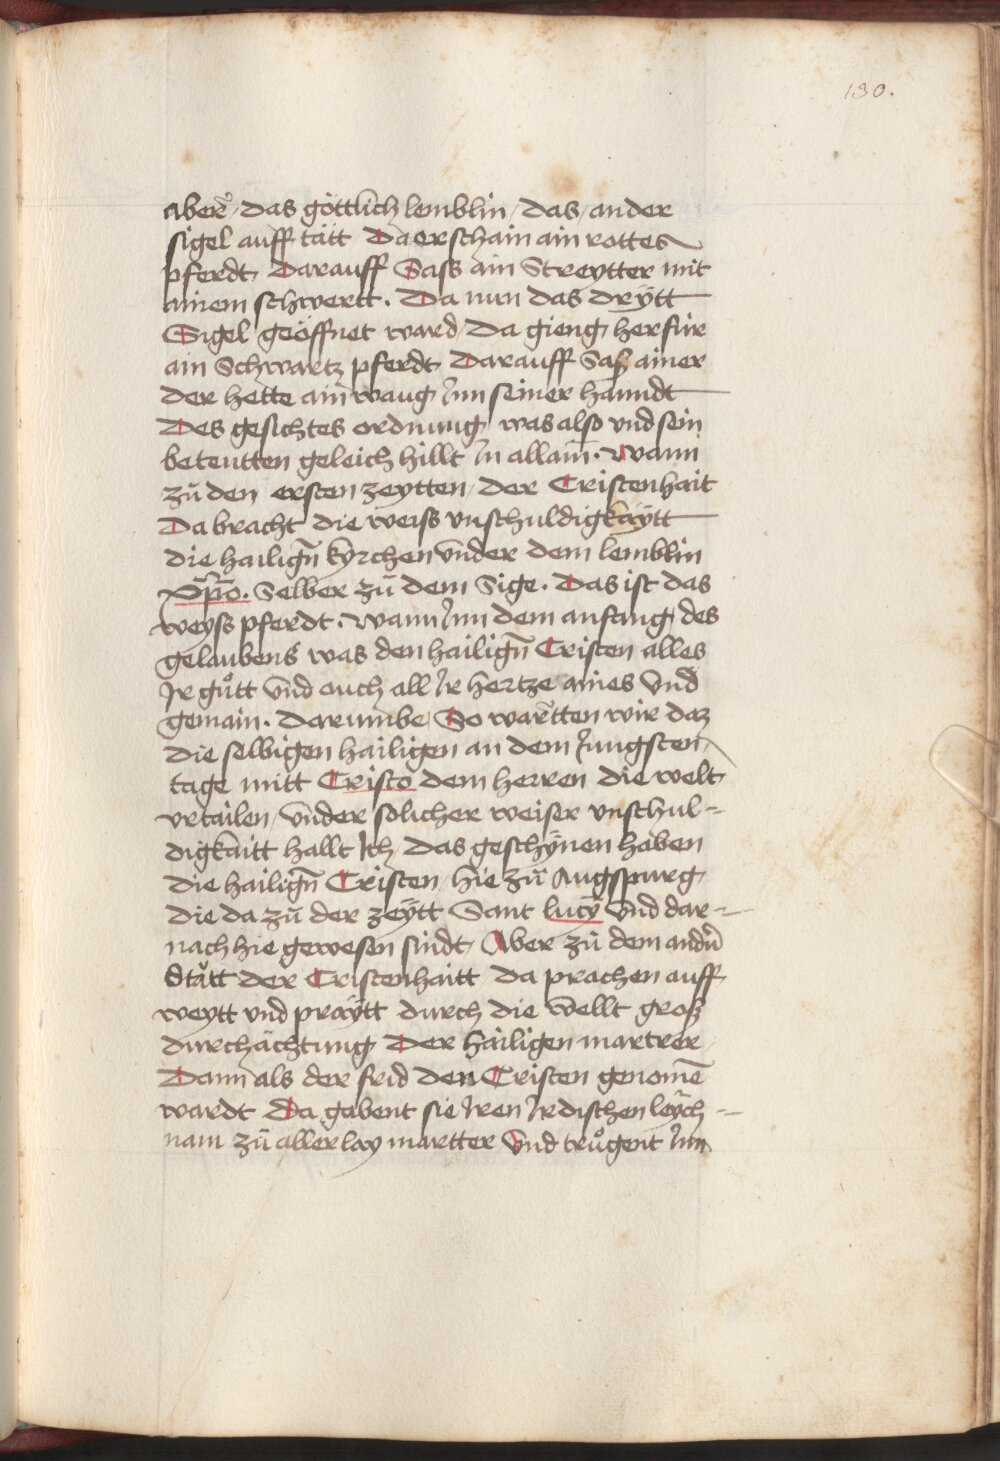 130.
aber / das göttlich lemblin / das / ander
sigel auff tätt Da erschain ain rottes
pferdt Darauff Sass ain Streytter mit
ainem schwertt . Da nun das drÿtt
Sigel geöffnet ward / Da gieng herfür
ain Schwartz pferdt Darauff Saß ainer
der hette ain waug Jnn seiner hanndt
Des gesichtes ordnung was also vnd sein
beteutten geleich hillt Jn allain̄ . Wann
zů den ersten zeytten / der Cristenhait
Da bracht die weiss vnschuldigkäytt
die hailigñ kÿrchen vnder dem lemblin
xp̄o . Selber zů dem Sige . Das ist das
weyss pferdt . wann Jnn dem anfang des
gelaubens was den hailigñ Cristen alles
Jr gůtt vnd ouch all Jr hertze aines vnd
gemain . Darumbe So wartten wir daz
die selbigen hailigen an dem Jungsten
tage mitt Cristo dem herren die welt
vrtailen / vnder solicher weiser vnschul=
digkaitt hallt Ich das geschÿnen haben
die hailigñ Cristen / hie zů Augspurg
die da zů der zeÿtt Sant lucÿ vnd dar=
nach hie gewesen sindt Aber zů dem andñ
Stått der Cristenhaitt da prachen auff
weytt vnd praÿtt durch die wellt groß
durchächtung Der hailigen martrer
Dann als der frid den Cristen genomē
wardt Da gabent sie Jren Jrdischen leÿch=
nam zů aller lay martter Vnd trůgent Jnn